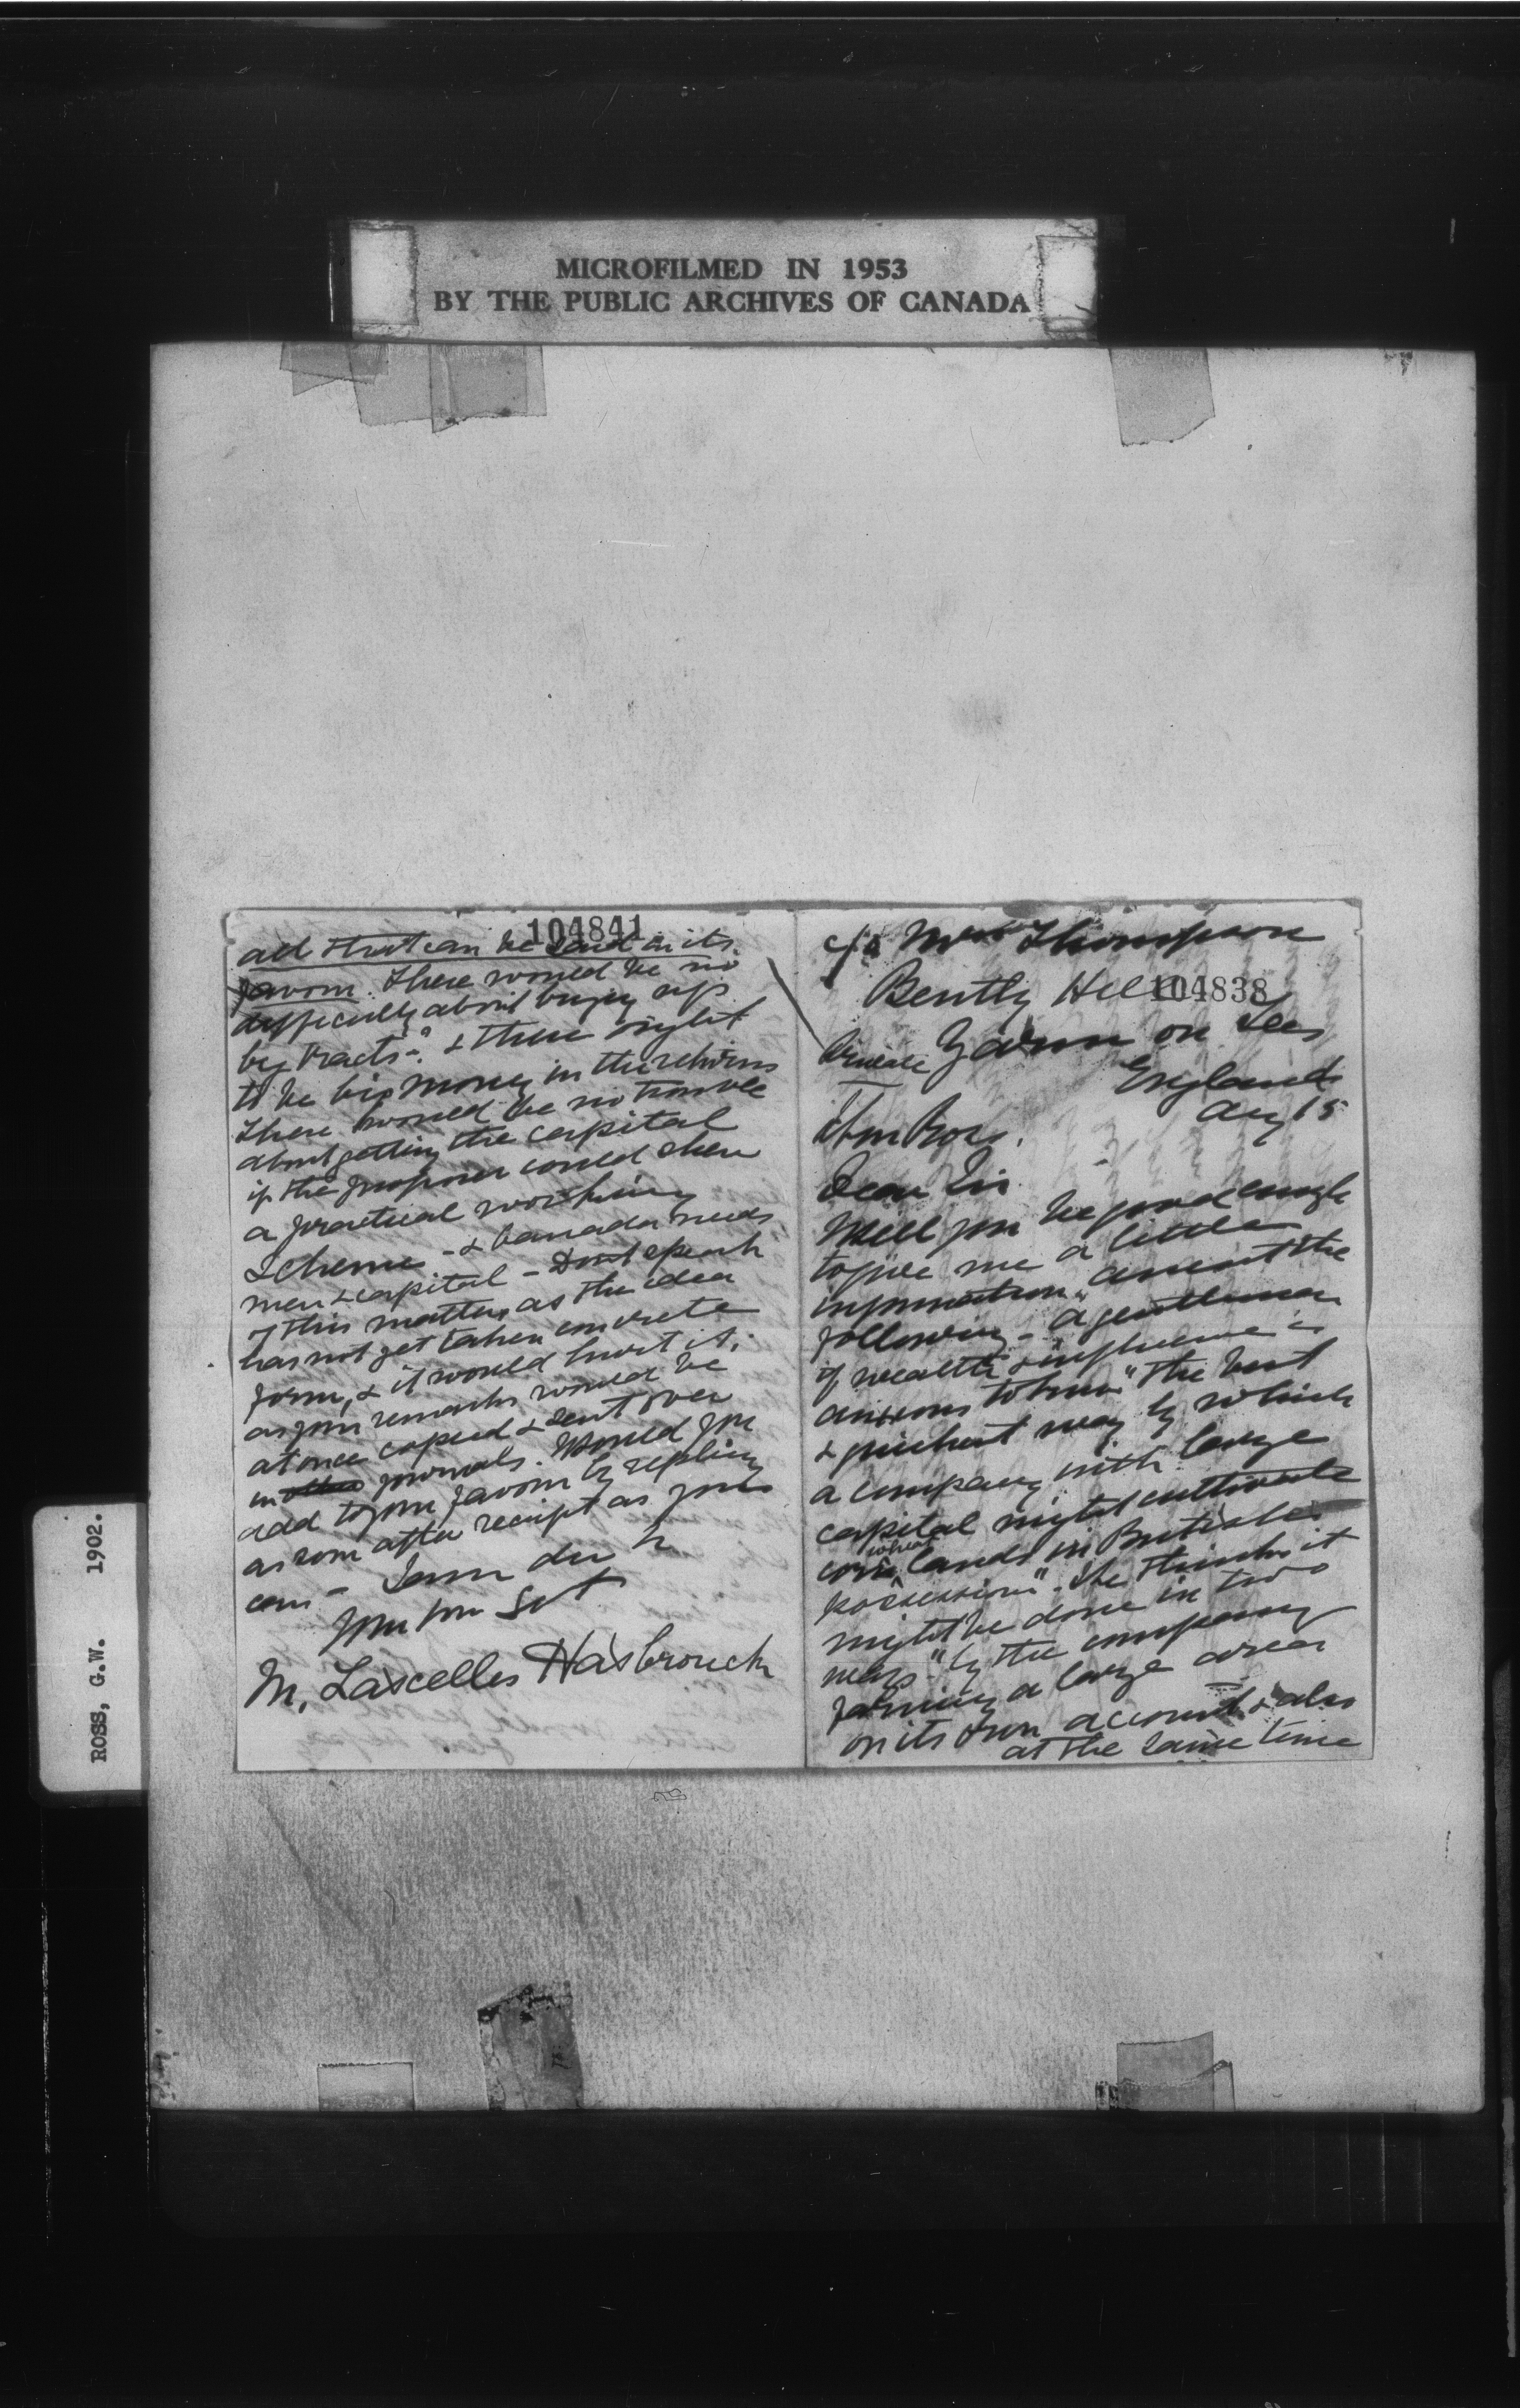 MICROFILMED IN 1953
BY THE PUBLIC ARCHIVES OF CANADA
ROSS, G.W. 1902.
104841
all that can be said in its
favour. There would be no
difficulty about buying up
big tracts-." & there ought
to be big money in the returns
There would be no trouble
about getting the capital
if the proposer could shew
a practical working
scheme - & Canada needs
men & capital - Dont speak
of this matter, as the idea
has not yet taken concrete
form, & it would hurt it,
as your remarks would be
at once copied & sent over
in journals. Would you
add to your favour by replying
as soon after receipt as you
can -
M. Lascelles Hasbrouck
c/o Mrs Thompson
Bently Hill
104838
Private Yarm on Tees
England
Aug 15
Hon Ross.
Dear Sir
Will you be good enough
to give me a little
information anent the
following - "a gentleman
of wealth & influence is
anxious to know "the best
& quickest way by which
a company with large
capital might cultivate
corn wheat lands in British
possessions". He thinks it
might be done in two
ways "by the company
farming a large area
on its own account & also
at the same time